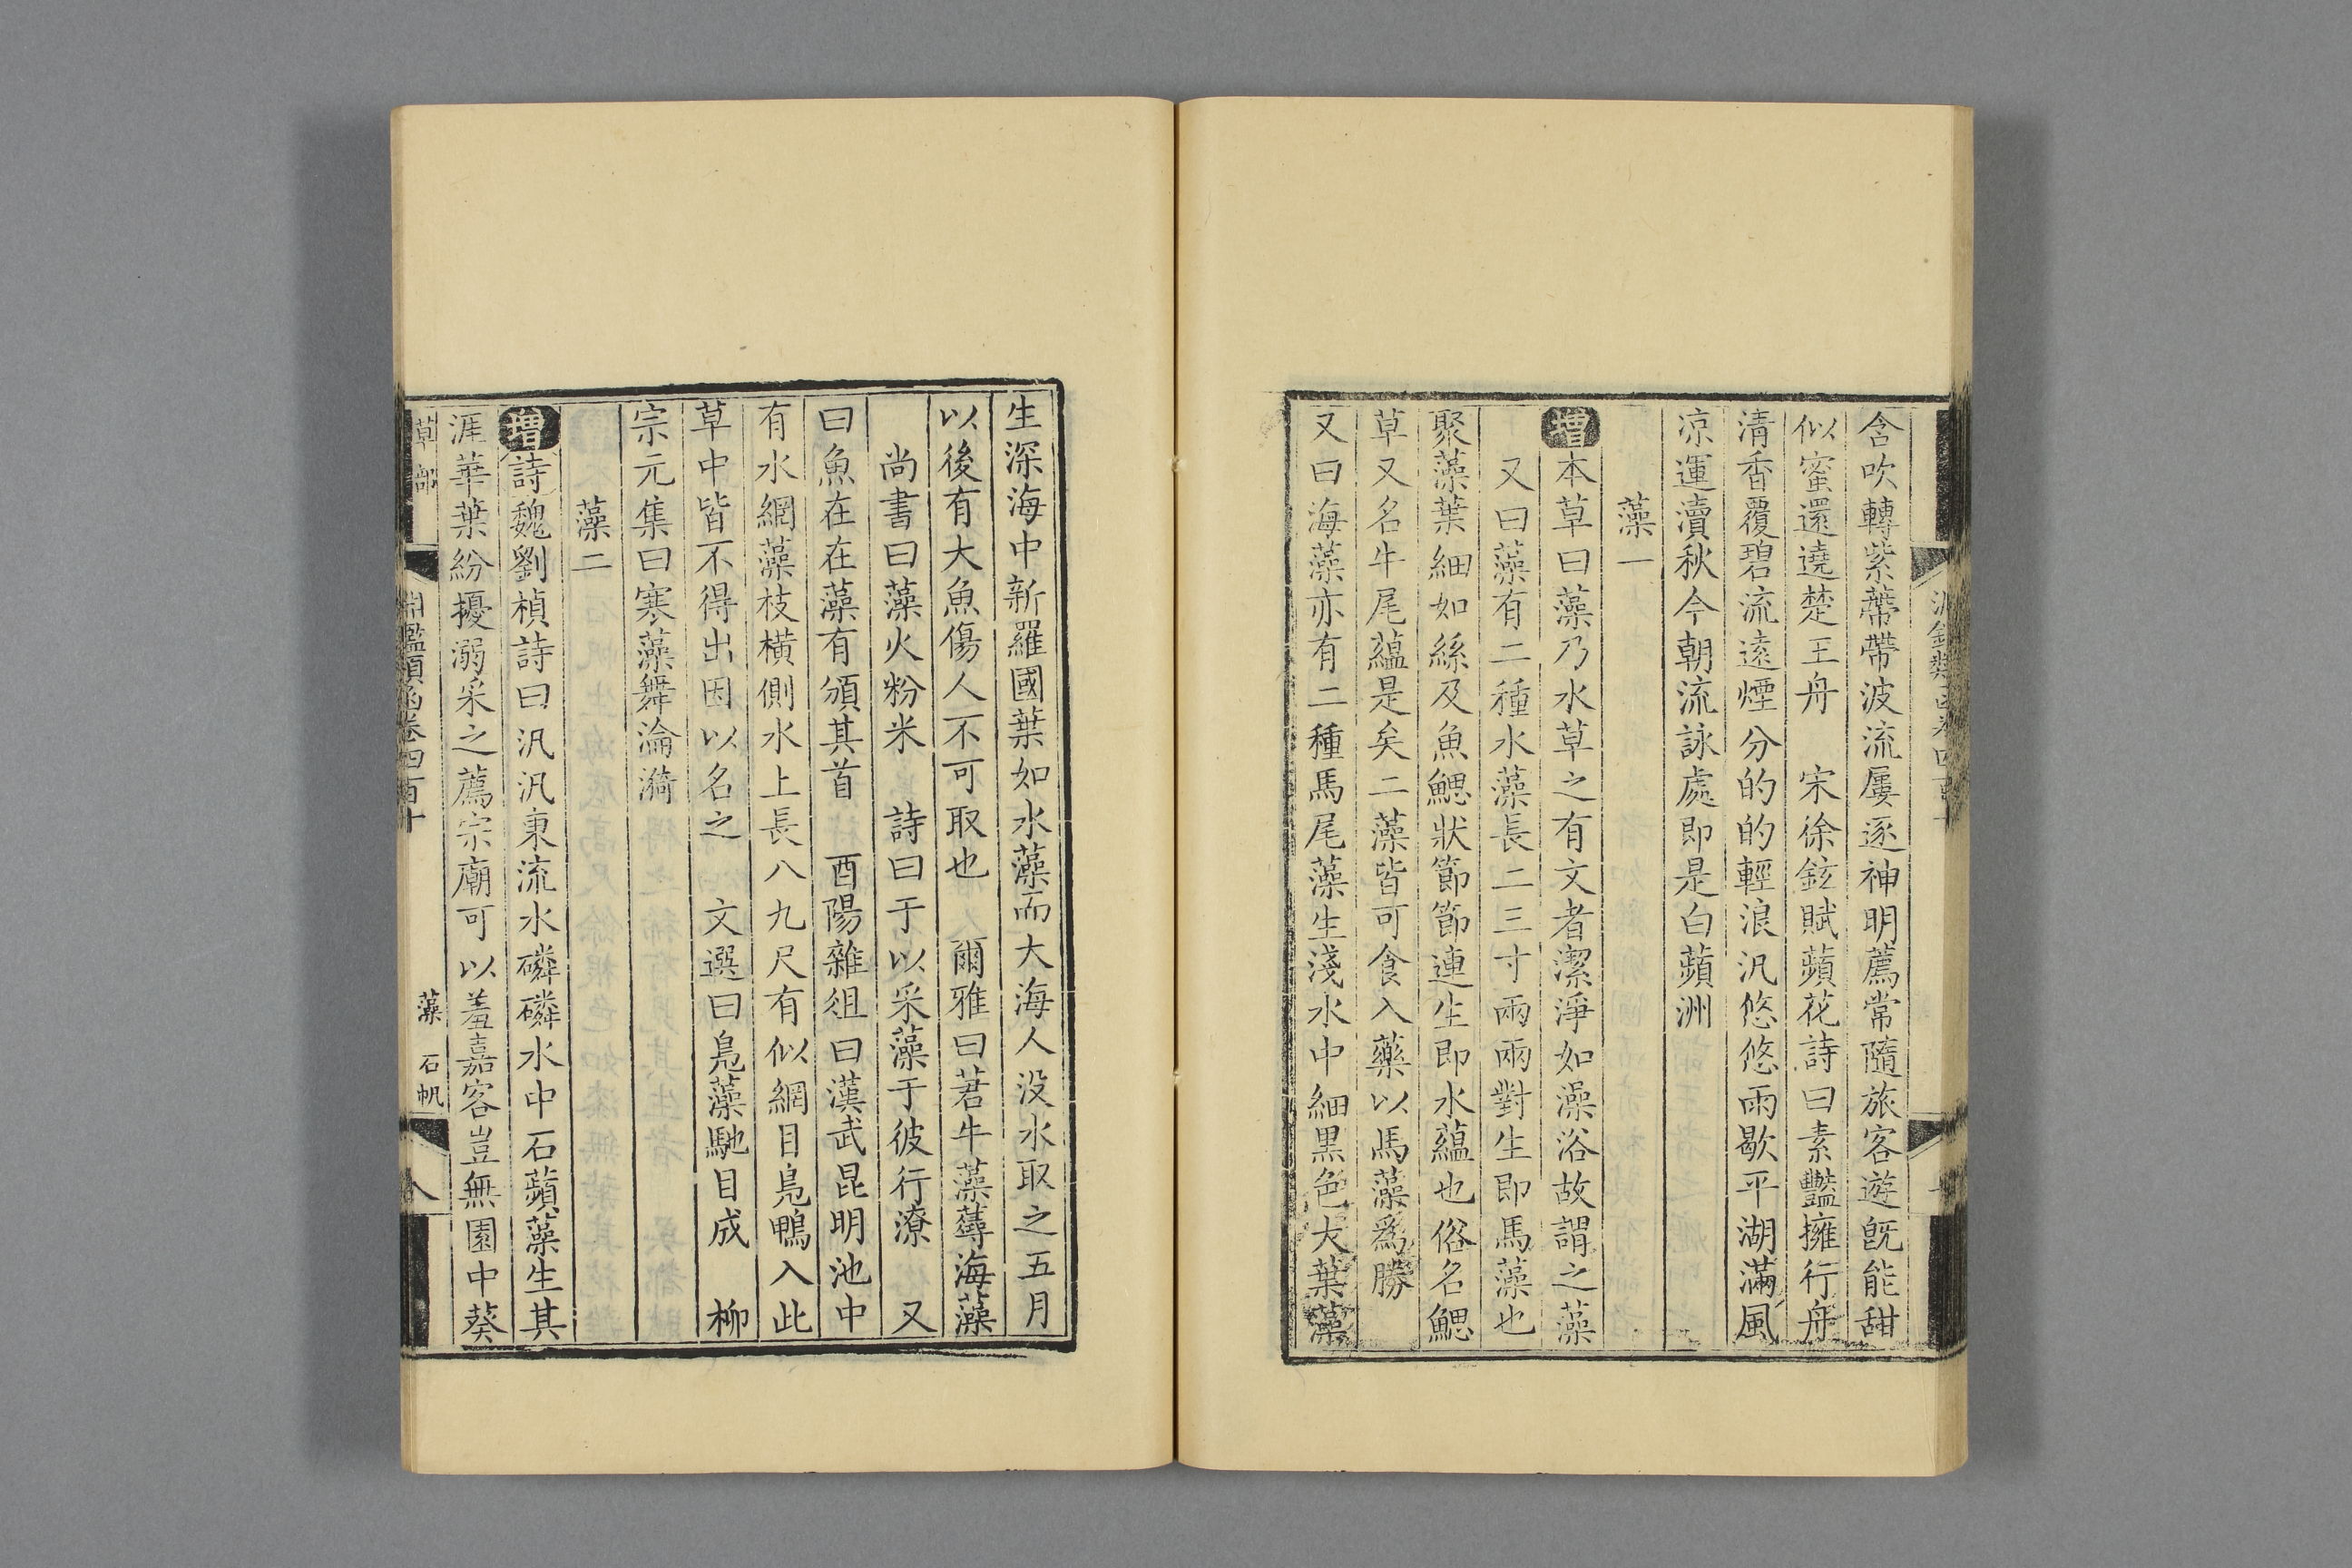 含吹轉紫蔕帶波流屢逐神明薦常隨旅客遊既能甜
似蜜還遶楚王舟　宋徐鉉賦蘋花詩曰素豔擁行舟
清香覆碧流遠煙分的的輕浪汎悠悠雨歇平湖滿風
涼運瀆秋今朝流詠處即是白蘋洲
藻一
增本草曰藻乃水草之有文者潔淨如澡浴故謂之藻
又曰藻有二種水藻長二三寸兩兩對生即馬藻也
聚藻葉細如絲及魚鰓狀節節連生即水蘊也俗名鰓
草又名牛尾蘊是矣二藻皆可食入藥以馬藻爲勝
又曰海藻亦有二種馬尾藻生淺水中細黑色大葉藻
生深海中新羅國葉如水藻而大海人没水取之五月
以後有大魚傷人不可取也　爾雅曰莙牛藻蕁海藻
尚書曰藻火粉米　詩曰于以采藻于彼行潦　又
曰魚在在藻有頒其首　酉陽雜俎曰漢武昆明池中
有水網藻枝橫側水上長八九尺有似網目鳧鴨入此
草中皆不得出因以名之　文選曰鳧藻馳目成　柳
宗元集曰寒藻舞淪漪
藻二
增詩魏劉楨詩曰汎汎東流水磷磷水中石蘋藻生其
涯華葉紛擾溺采之薦宗廟可以羞嘉客豈無園中葵
草部　淵鑑類函卷四百十　藻　石帆　八